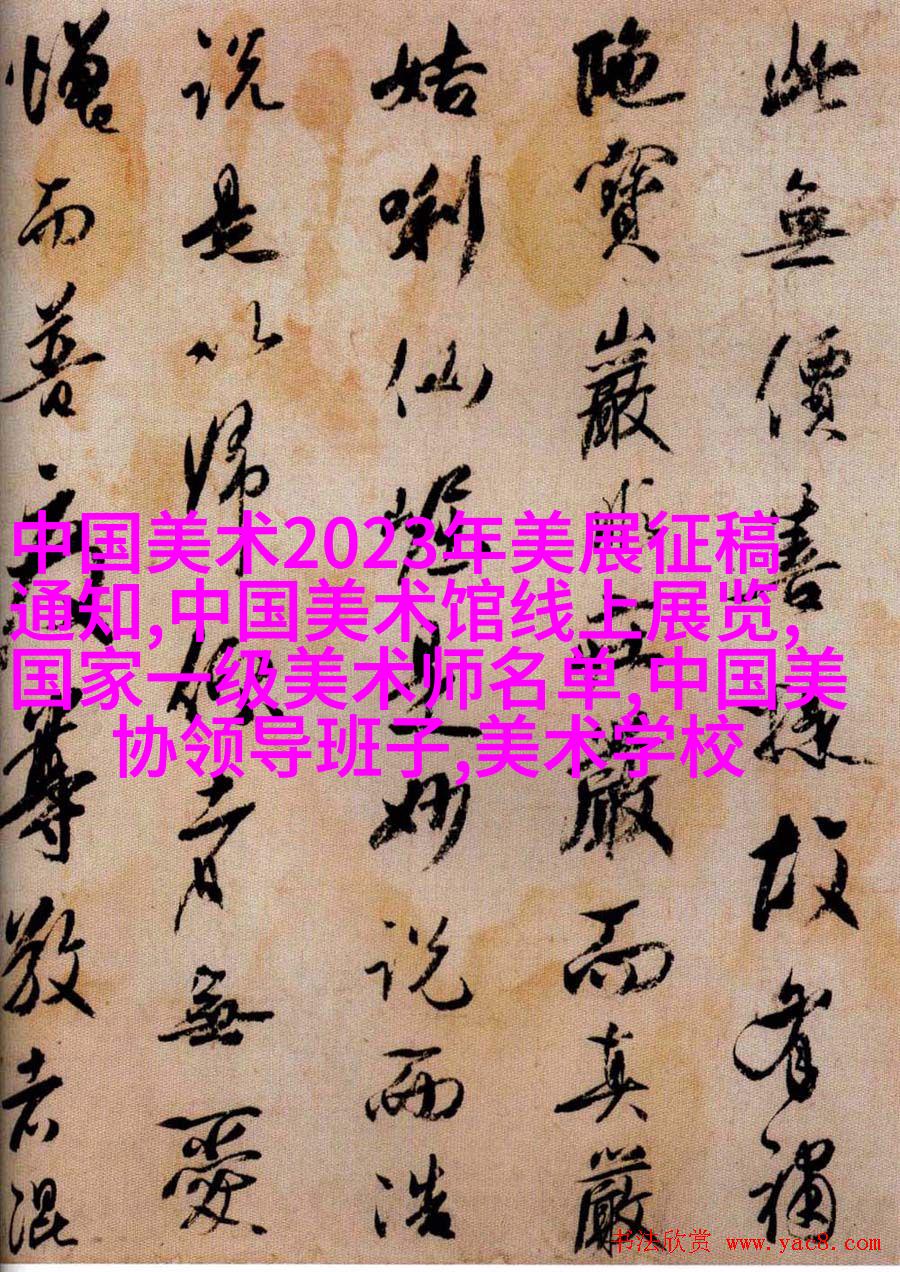 此無價喜故有補
陁寶巖嚴而真嚴
姑唎仙妙説而浩
説是以歸依者無愛
憎而普尊敬者混
中国美术2023年美展征稿
通知,中国美术馆线上展览,
国家一级美术师名单,中国美
协领导班子,美术学校
书法欣赏 www.yac8.com